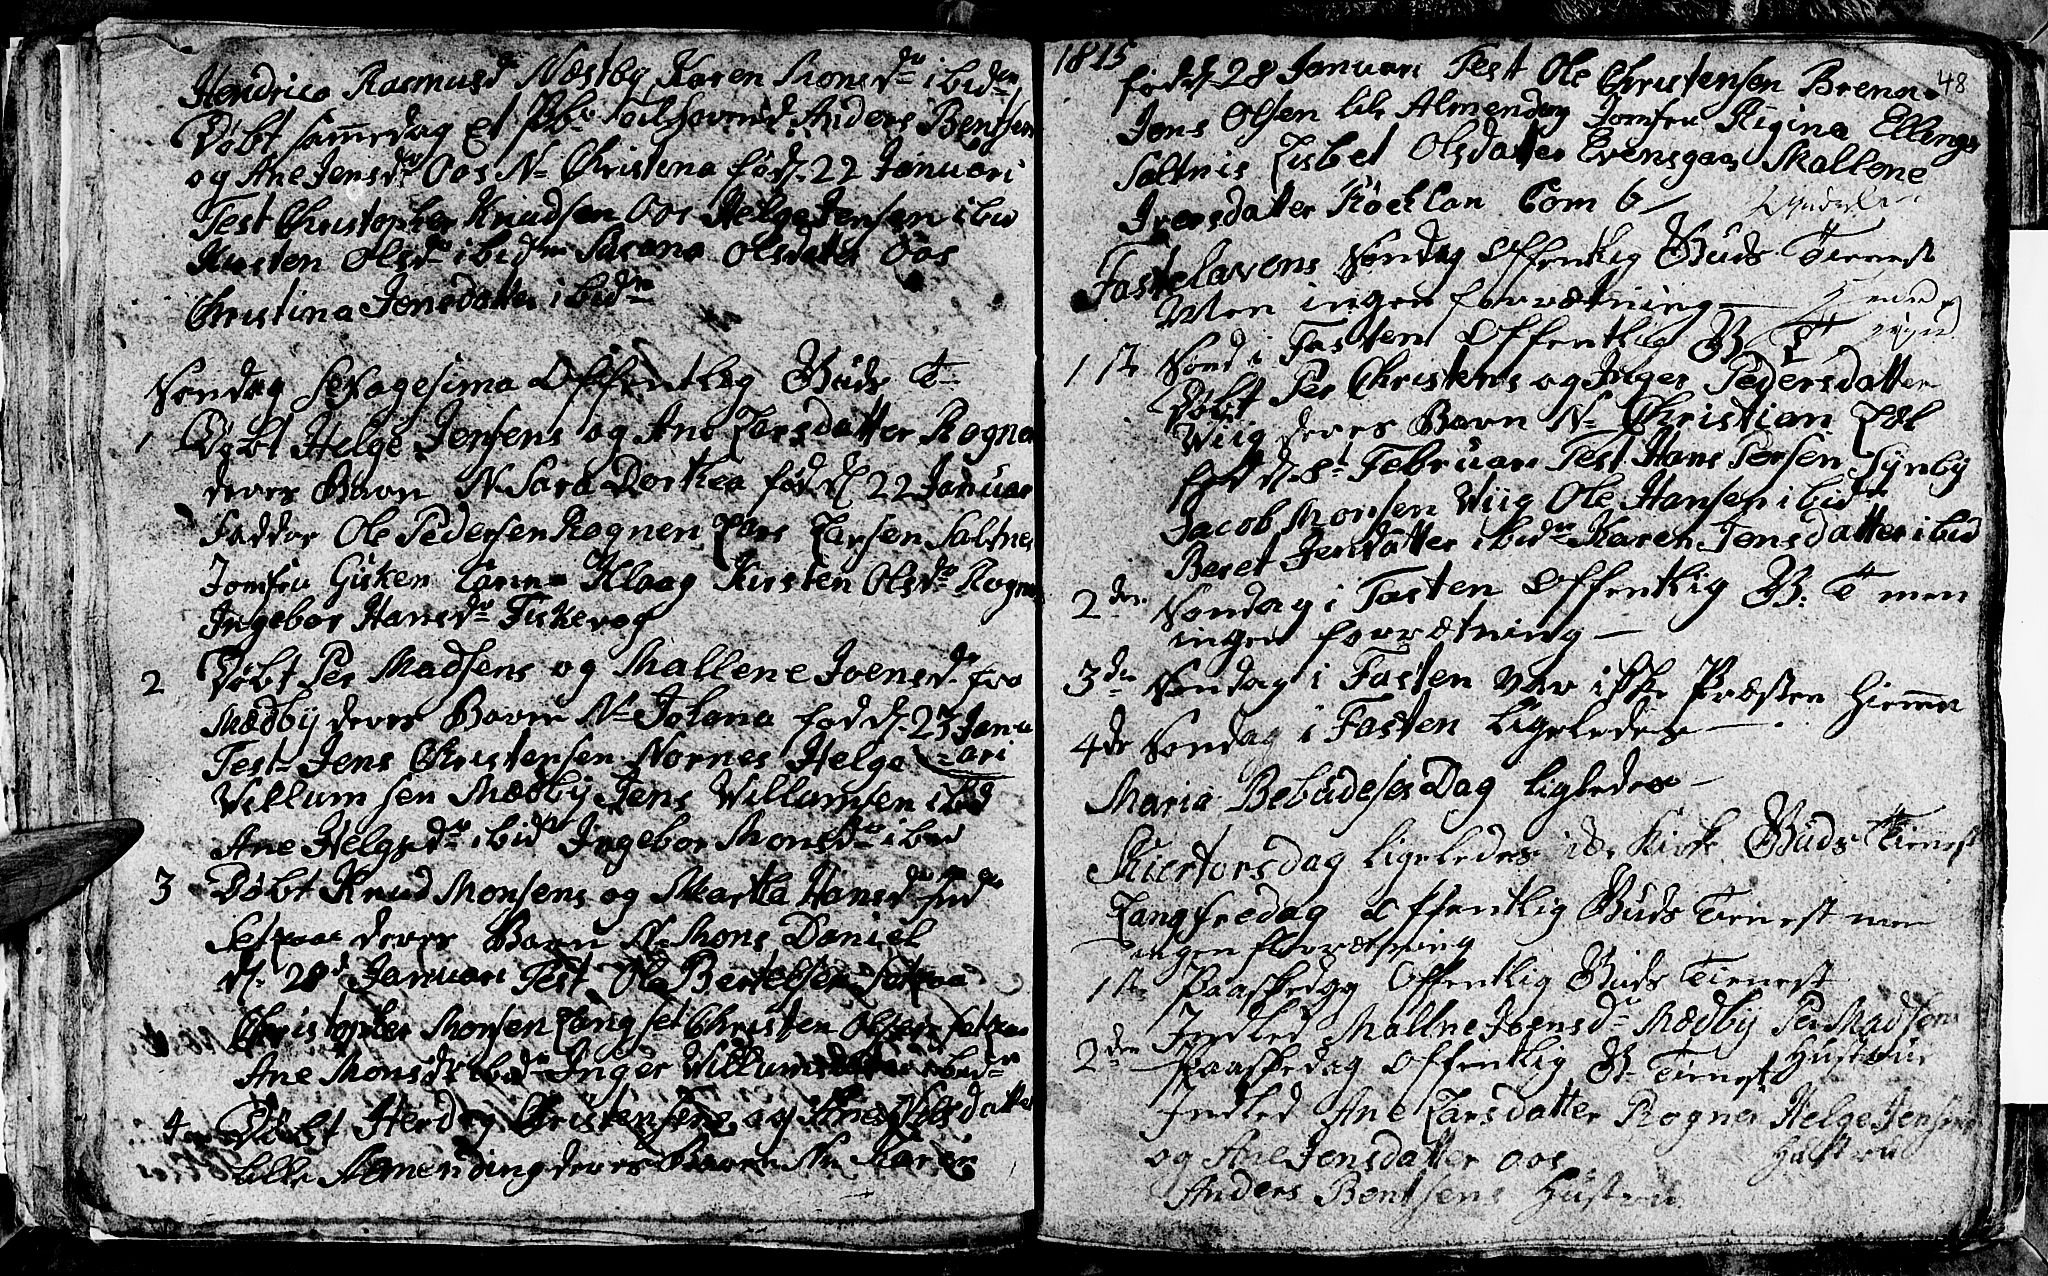 Hendrica Rasmusd Næstby Karen Monsdr ibidm
Døbt sammedag Et Anders Bentsen
og Ane Jensdr Oos N Christina født 22 Januari
Test Christopher Knudsen Oos Helge Jensen ibid
Kirsten Olsdr ibidm Susana Olsdatter Oos
Christina Jensdatter ibidm
Søndag Sexagesima Offentlig Guds T
1 Døbt Helge Jensens og Ane Larsdatter Rogne
deres Barn N Sara Dorthea fød d 22 Januar
Faddor Ole Pedersen Rognen Lars Larsen Saltnes
Jomfru Giken Klaag Kirsten Olsdr Rogne
Ingebor Hansdr Fiskevog
2 Døbt Per Madsens og Mallene Joensdr fra
Mædbÿ deres Barn N Johana fød d. 23 Janu
Test Jens Christensen Nornes Helge =ari
Willumsen Mædbÿ Jens Willumsen ibid
Ane Helgsdr ibid Ingebor Monsdr ibid
3 Døbt Knud Monsens og Martha Hansdr
Setraae deres Barn N Mons Daniel
d. 28d Januari Test Ole Bertelsen Setraa
Christopher Monsen Langset Christen Olsen Setraa
Ane Monsdr ibid Inger Willumsdatter ibidm
4 Døbt Herdog Christensens og Ane Nilsdatter
Lille Almending deres Barn N Karen
1815
48
født 28 Januari Test Ole Christensen Brenna
Jens Olsen lile Almending Jomfru Rigina Ellings
Saltnis Lisbet Olsdatter Evensgaar Mallene
Iversdatter Röcklan Com 6
Fastelavens Søndag Offentlig Guds Tienest
Men ingen forrætning
1ste Sønd i Fasten Offentlig G T
Døbt Per Christens og Inger Pedersdatter
Wiig deres Barn N Christian
fød d. 8d Februari Test Hans Persen Synbÿ
Jacob Monsen Wiig Ole Hansen ibid
Beret Jensdatter ibidm Karen Jensdatter ibid
2den Søndag i Fasten Offentlig G: T men
ingen forrætning
3de Søndag i Fasten var ikke Præsten hiemme
4de Søndag i Fasten ligeledes
Maria Bebudeses Dag ligledes
Skiertorsdag ligeledes Kirke Guds Tienest
Langfredag Offentlig Guds Tienest men
ingen forrætning
1ste Paaskedag Offentlig Guds Tienest
Indled Mallne Joensdr Mædbÿ Per Madsens
Hustrue
2den Paaskedag Offentlig G Tienest
Indled Ane Larsdatter Rogne Helge Jensens
Hustrue
og Ane Jensdatter Oos
Anders Bentsens Hustru